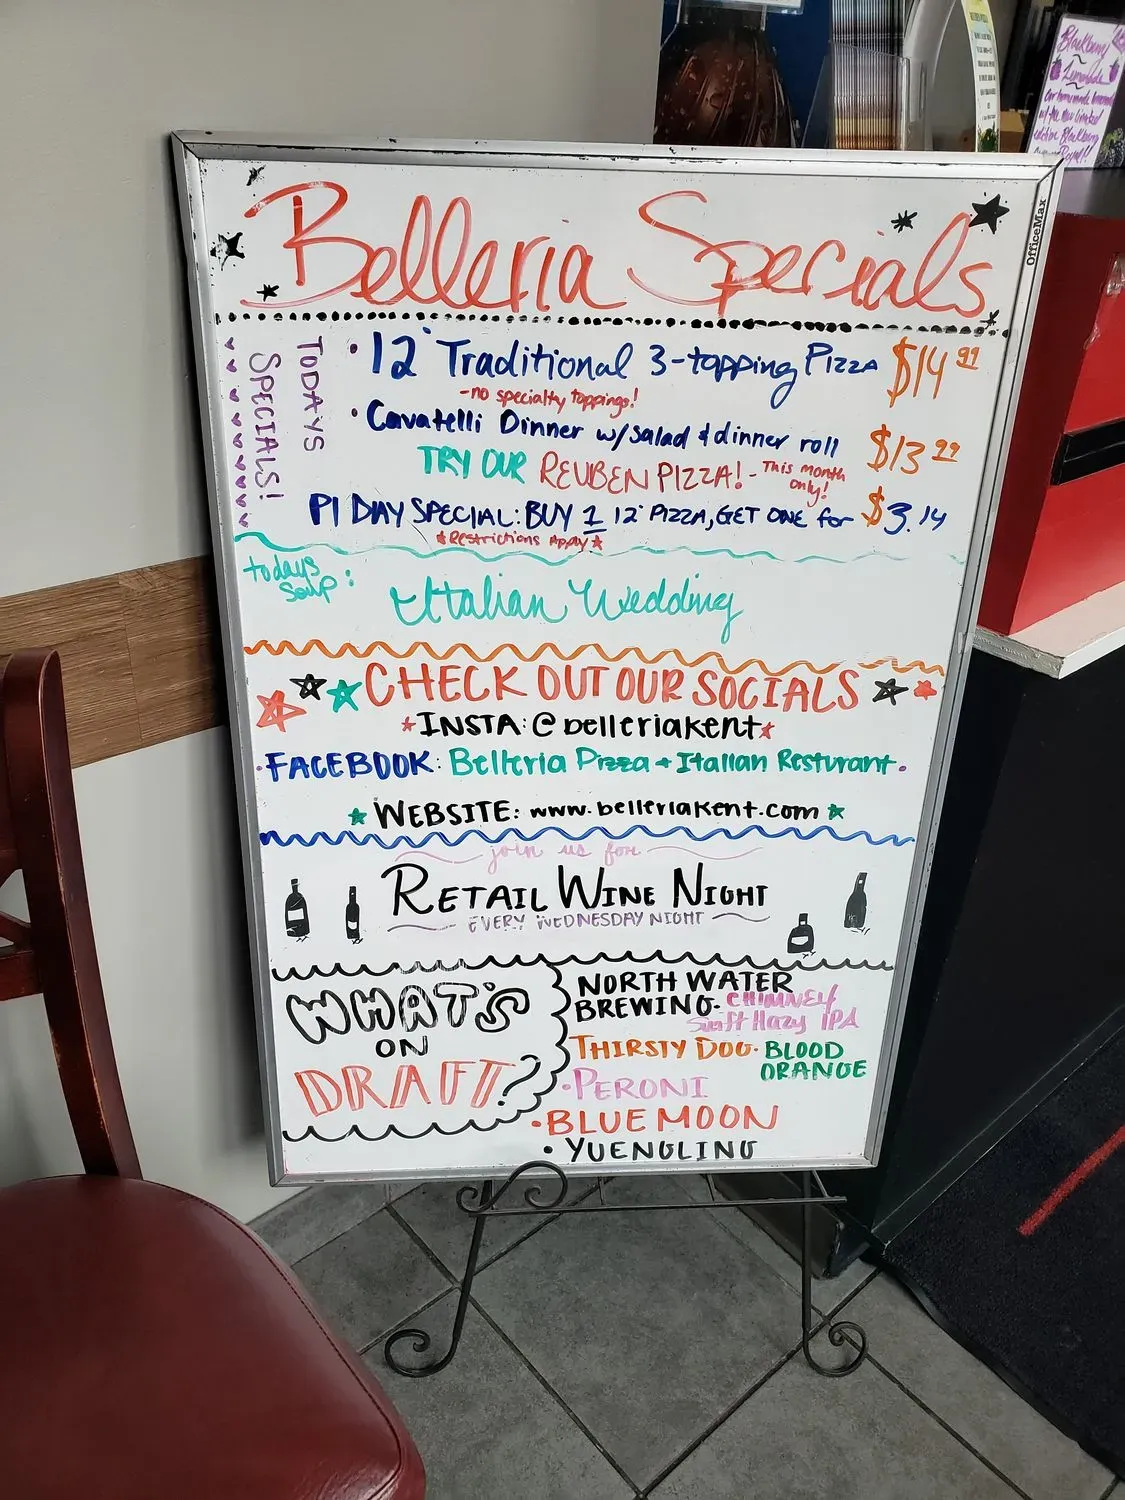 Belleria Specials
OfficeMax
TODAYS
SPECIALS!
• 12" Traditional 3-topping Pizza $14.99
-no specialty toppings!
• Cavatelli Dinner w/salad & dinner roll $13.99
TRY OUR REUBEN PIZZA! - This month only!
PI DAY SPECIAL: BUY 1 12" PIZZA, GET ONE for $3.14
*Restrictions Apply*
todays
Soup:
Italian Wedding
CHECK OUT OUR SOCIALS
*INSTA: @belleriakent*
•FACEBOOK: Belleria Pizza + Italian Resturant•
*WEBSITE: www.belleriakent.com*
join us for
RETAIL WINE NIGHT
EVERY WEDNESDAY NIGHT
WHAT'S
ON
DRAFT?
NORTH WATER
BREWING- CHIMNEY
Swift Hazy IPA
THIRSTY DOG- BLOOD
ORANGE
•PERONI
•BLUE MOON
• YUENGLING
Blackberry
Lemonade
our homemade lemonade
w/ the new limited
edition Blackberry
Royal!!